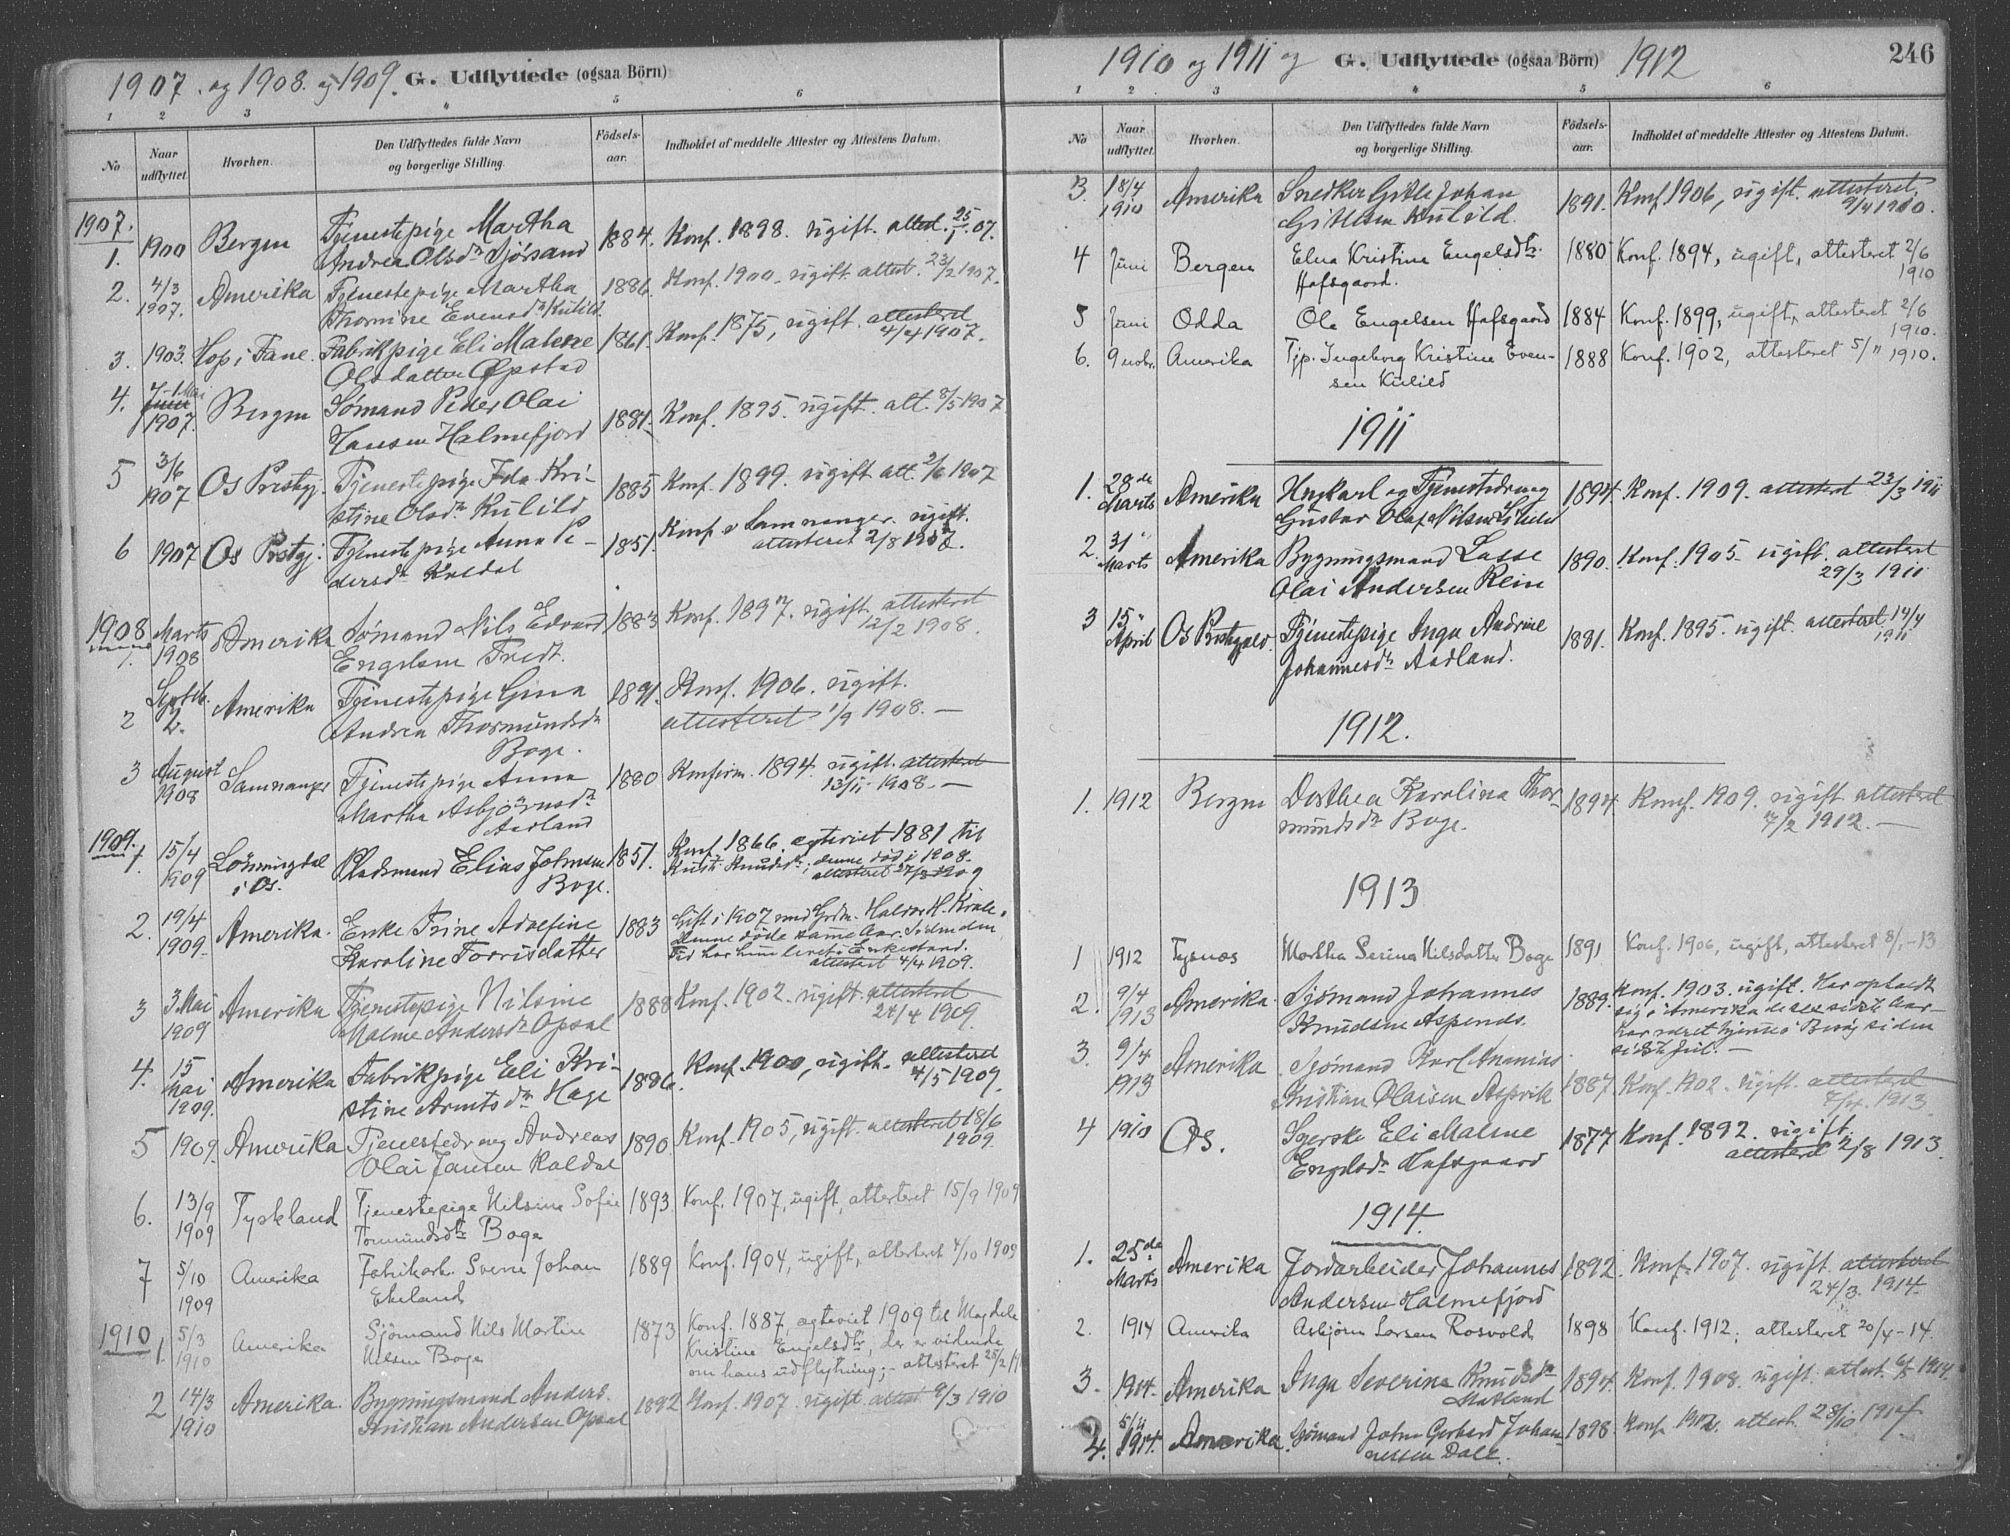 1907. og 1908. og 1909. G. Udflyttede (ogsaa Börn)
1 2 3 4 5 6
No Naar udflyttet. Hvorhen. Den Udflyttedes fulde Navn og borgerlige Stilling. Födsels-aar. Indholdet af meddelte Attester og Attestens Datum.
1907.
1. 1900 Bergen Tjenestepige Martha 1884. Konf. 1898. ugift. attest. 25/1.07.
Andrea Olsdr Sjörsand
2. 4/3 1907. Amerika Tjenestepige Martha 1886. Konf. 1900. ugift. attest. 23/2 1907.
Thormine Evensdr Kulild.
3. 1903. Hop i Fane. Fabrikpige Eli Malene 1861. Konf. 1875, ugift. attesteret
Olsdatter Opstad 4/4 1907.
4. Mai 1907. Bergen Sømand Peder Olai 1881. Konf. 1895. ugift. att. 8/5 1907
Hansen Halmefjord
5 3/6 1907 Os Prestgj. Tjenestepige Ida Kri- 1885 Konf. 1899. ugift att. 2/6 1907
stine Olsdr Kulild
6 1907 Os Prstgj. Tjenestepige Anna Pe- 1851. Konf. i Samnanger. ugift.
dersdr Koldal attesteret 2/8 1907.
1908
1. Marts 1908 Amerika Sømand Nils Edvard 1883 Konf. 1897. ugift. attesteret
Engelsen Tredt. 12/2 1908.
2 Septb. Amerika Tjenestepige Gina 1891. Konf. 1906. ugift.
Andrea Thormundsdr attesteret 1/9 1908. —
Boge.
3 August 1908 Samnanger Tjenestepige Anna 1880 Konfirm. 1894. ugift. attesteret
Martha Asbjörnsdr 13/11. 1908. —
Aadland
1909.
1 15/4 1909 Lönningdal i Os. Pladsmand Elias Johnsen 1851. Konf 1866. egteviet 1881 til
Boge. Kristi Knudsdr; denne död i 1908.
attesteret 27/3 1909
2. 19/4 1909. Amerika. Enke Trine Adolfine 1883 Gift i 1907 med Halvor H.
Karoline Torrisdatter denne døde samme Aar. Siden den
Tid har hun levet i Enkestand.
attesteret 4/4 1909.
3 3 Mai 1909 Amerika Tjenestepige Nilsine 1888 Konf. 1902. ugift. attesteret
Malene Andersdr Opsal 24/4 1909.
4. 15 Mai 1909. Amerika Fabrikpige Eli Kri- 1886. Konf. 1900, ugift. attesteret
stine Arntsdr Hage 4/5 1909.
5 1909. Amerika Tjenestedreng Andreas 1890. Konf. 1905, ugift. attesteret 18/6
Olai Jansen Koldal 1909.
6. 13/9 1909 Tyskland Tjenestepige Nilsine Sofie 1893 Konf. 1907, ugift, attesteret 15/9 1909
Tormundsdtr Boge
7 5/10 1909 Amerika Fabrikarb. Sverre Johan 1889 Konf. 1904, ugift, attesteret 4/10 1909
Ekeland
1910
1. 5/3 1910 Amerika Sjömand Nils Martin 1873 Konf. 1887, egteviet 1909 til Magdele
Nilsen Boge Kristine Engelsdtr, der er vidende
om hans udflytning; attesteret 25/2
2 14/3 1910 Amerika. Bygningsmand Anders 1892 Konf. 1907. ugift attest 9/3 1910
Kristian Andersen Opsal
1910 og 1911 og G. Udflyttede (ogsaa Börn) 1912 246
1 2 3 4 5 6
No Naar udflyttet. Hvorhen. Den Udflyttedes fulde Navn og borgerlige Stilling. Födsels-aar. Indholdet af meddelte Attester og Attestens Datum.
3. 18/4 1910 Amerika Snedker Gitle Johan 1891. Konf. 1906, ugift. attesteret
Gitlesen Kulild. 9/4 1910.
4 Juni Bergen Elna Kristine Engelsdtr. 1880 Konf. 1894, ugift, attesteret 2/6
Hafsgaard. 1910
5 Juni Odda Ole Engelsen Hafsgaard 1884 Konf. 1899, ugift, attesteret 2/6
1910.
6. 9 nobr. Amerika Tjp. Ingeborg Kristine Even- 1888 Konf. 1902, attesteret 5/11 1910.
sen Kulild
1911
1. 28de Marts Amerika Ungkarl og Tjenestedreng 1894 Konf. 1909. attesteret 23/3 1911
Gustav Olaf Nilsen
2. 31" Marts Amerika Bygningsmand Lasse 1890. Konf. 1905. ugift. attesteret
Olai Andersen Rein 29/3 1911
3 15" April Os Prstgjeld. Tjenestepige Inga Andrine 1881. Konf. 1895. ugift. attesteret 14/4
Johannesdr Aadland. 1911
1912.
1. 1912 Bergen Dorthea Karolina Thor- 1894. Konf. 1909. ugift attesteret
mundsdr Boge. 7/2 1912. —
1913
1 1912 Tysnes Martha Serina Nilsdatter Boge 1891 Konf. 1906, ugift, attesteret 8/1-13
2. 9/4 1913 Amerika. Sjømand Johannes 1889. Konf. 1903. ugift. Har opholdt
Knudsen Aspenes. sig i Amerika de sidste Aar
har været hjemme i Besøg siden
sidste Jul. —
3. 9/4 1913 Amerika Sjømand Karl Ananias
Kristian Olaisen Aspvik 1887 Konf. 1902. ugift. attesteret
1913.
4 1910 Os. Syerske Eli Malene 1877 Konf. 1892. ugift.
Engelsdr Hafsgaard attesteret 2/8 1913.
1914.
1. 25de Marts Amerika Jordarbeider Johannes 1892. Konf. 1907. ugift. attesteret
Andersen Halmefjord 24/3. 1914.
2. 1914 Amerika Asbjörn Larsen Rosvold 1898 Konf. 1912, attesteret 20/4-14.
3. 1914. Amerika Inga Severine Knudsdr 1894. Konf. 1908. ugift. attest. 1914.
Hatland
4. 5/11 1914. Amerika. Sjømand John Gerhard Johan- 1898 Konf. 1912. attest. 28/10 1914
nessen Dale.